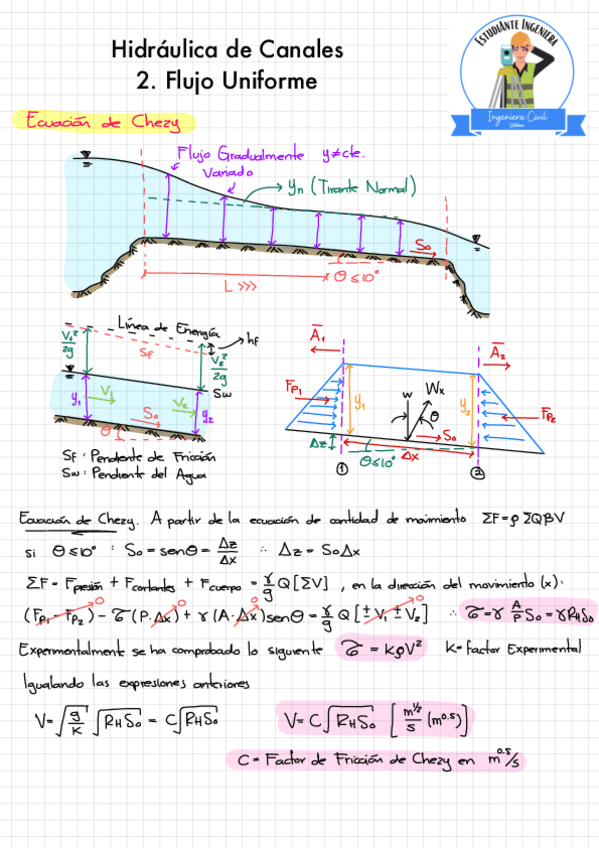 Hidráulica de Canales
2. Flujo Uniforme
EStudiAnte IngenierA
Ingeniería Civil
Ecuación de Chezy
Flujo Gradualmente y≠cte.
Variado
yn (Tirante Normal)
So
L >>>
θ≤10°
Línea de Energía
hf
V₁²/2g
Sf
V₂²/2g
Sw
y₁
V₁
V₂
y₂
So
θ
Sf : Pendiente de Fricción
Sw : Pendiente del Agua
A̅₁
A̅₂
Fp₁
y₁
w
Wx
θ
y₂
Fp₂
So
Δz
θ≤10°
Δx
①
②
Ecuación de Chezy. A partir de la ecuación de cantidad de movimiento ΣF=ρΣQβV
si θ≤10° : So=senθ=Δz/Δx ∴ Δz=SoΔx
ΣF = Fpresión + Fcortantes + Fcuerpo = γ/g Q[ΣV] , en la dirección del movimiento (x):
(Fp₁ - Fp₂)→0 - τ(P·Δx)→0 + γ(A·Δx)→0 senθ = γ/g Q[±V₁ ± V₂]→0 ∴ τ=γ A/P So = γRHSo
Experimentalmente se ha comprobado lo siguiente τ = kρV² K=factor Experimental
Igualando las expresiones anteriores
V=√(g/K) √(RHSo) = C√(RHSo) V=C√(RHSo) [m^½/s (m^0.5)]
C = Factor de Fricción de Chezy en m^0.5/s